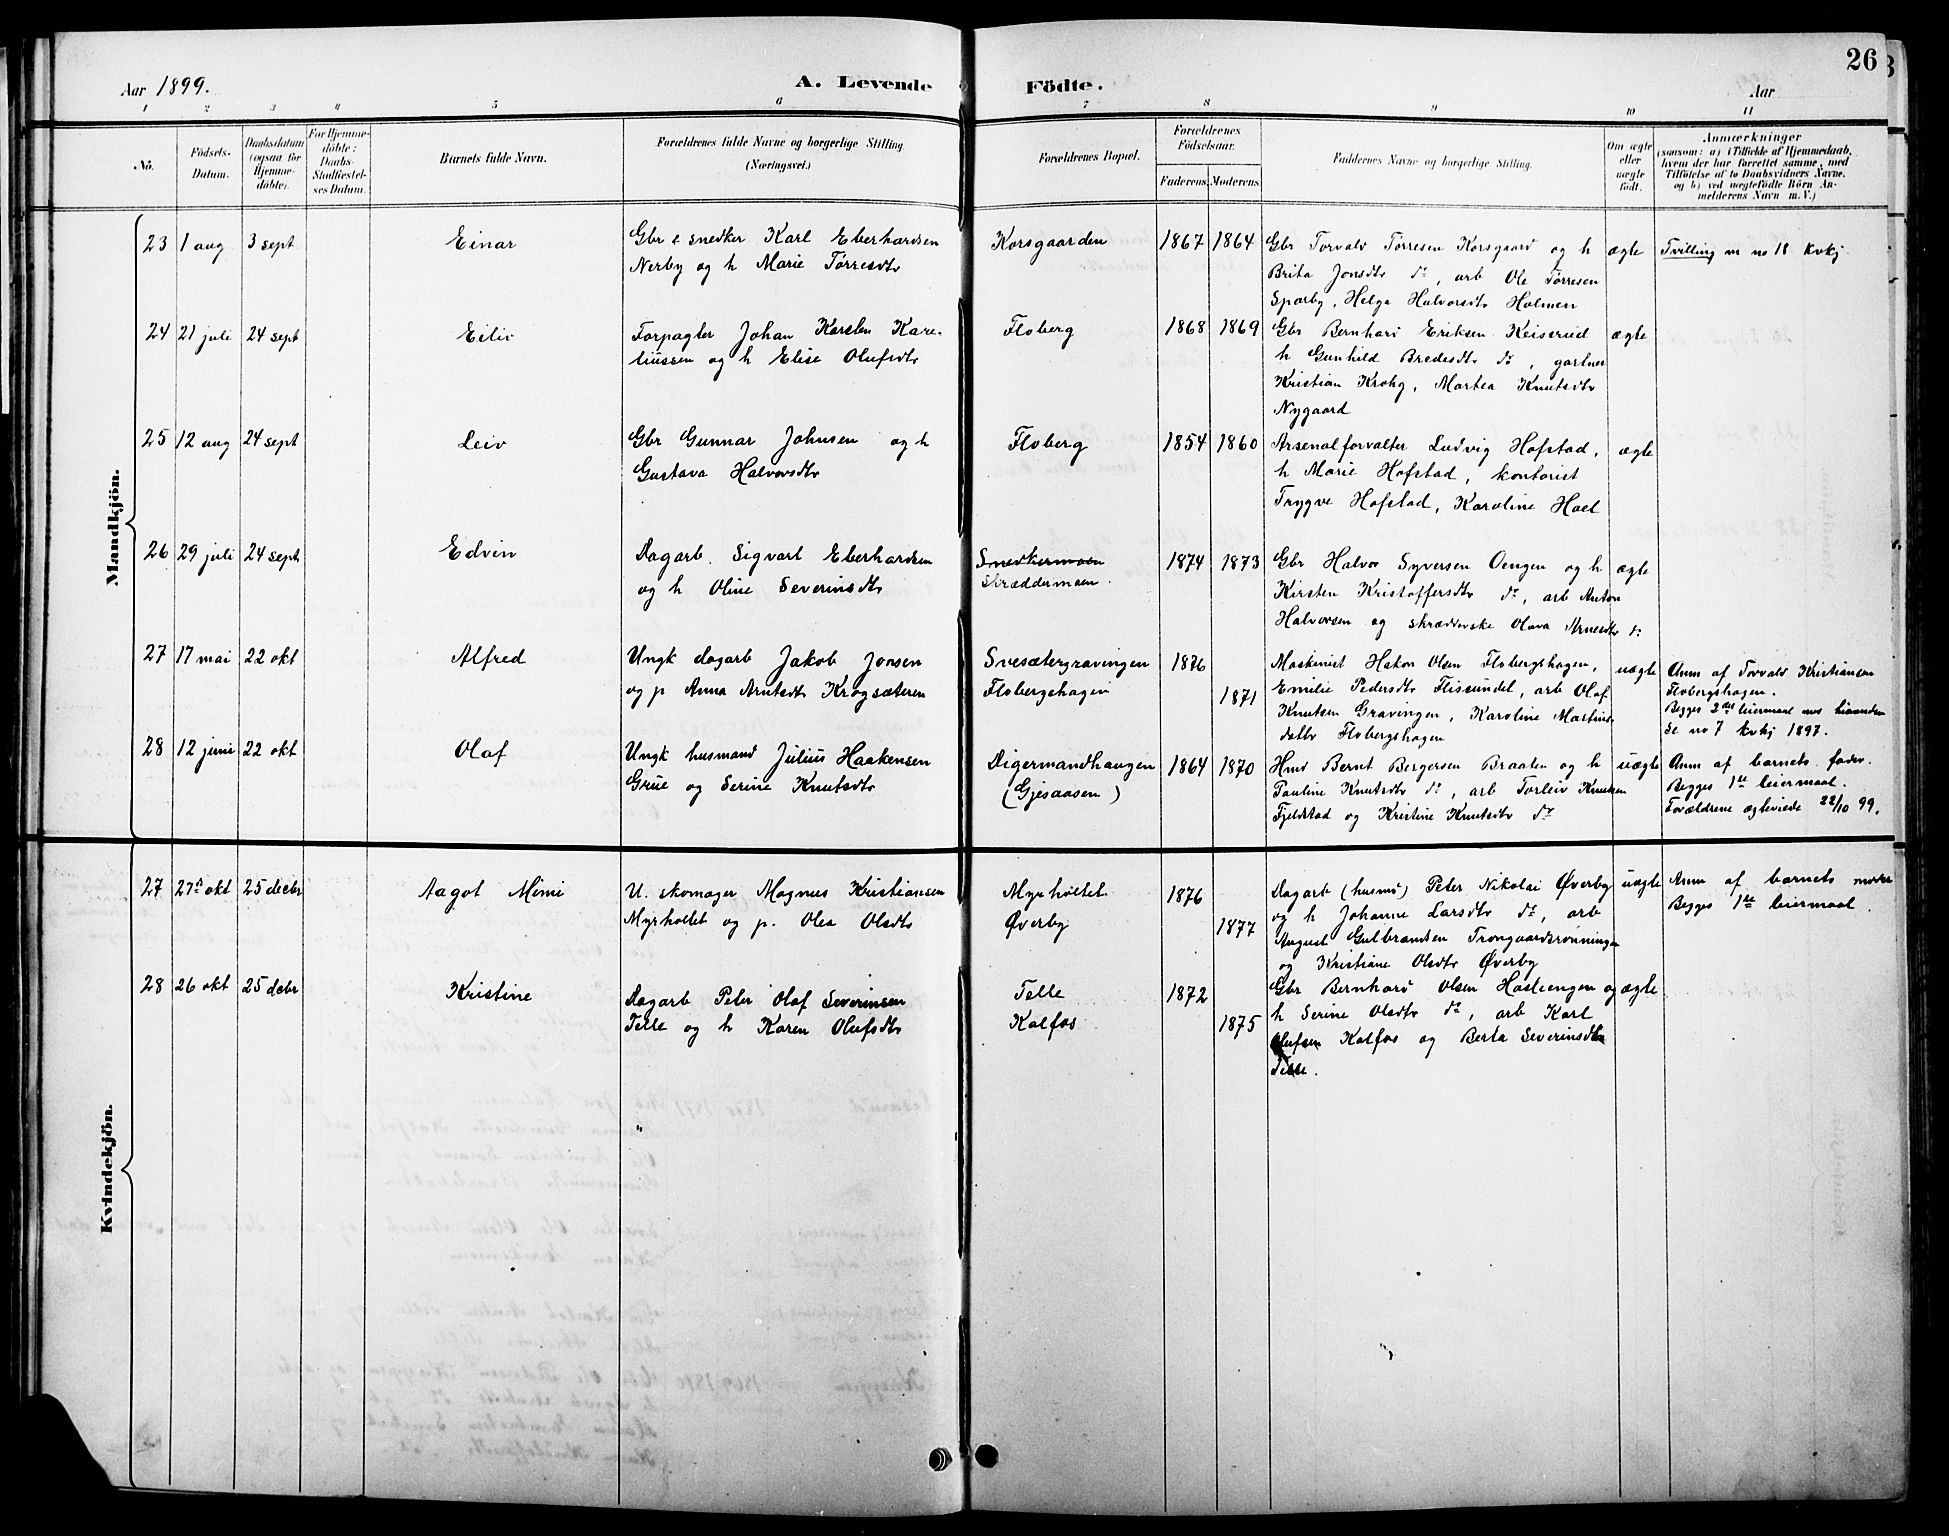 Aar 1899.
A. Levende Födte.
Aar
26
1 2 3 4 5 6 7 8 9 10 11
No.
Födsels-Datum.
Daabsdatum (ogsaa for Hjemme-döbte).
For Hjemme-döbte: Daabs-Stadfæstel-ses Datum.
Barnets fulde Navn.
Forældrenes fulde Navne og borgerlige Stilling. (Næringsvei.)
Forældrenes Bopæl.
Forældrenes Födselsaar.
Faderens. Moderens.
Faddernes Navne og borgerlige Stilling.
Om ægte eller uægte födt.
Anmærkninger
(saasom: a) i Tilfælde af Hjemmedaab, hvem der har forrettet samme, med Tilföielse af to Daabsvidners Navne, og b) ved uægtefödte Börn An-melderens Navn m. V.)
Mandkjön.
23 1 aug 3 sept Einar
Gbr & snedker Karl Eberhardsen
Nerby og h Marie Tørresdtr
Korsgaarden 1867 1864
Gbr Torvald Tørresen Korsgaard og h
Brita Jonsdtr dº, arb Ole Tørresen
Sparby, Helga Halvorsdtr Holmen
ægte
Tvilling m no 18 kvkj.
24 21 juli 24 sept Eiliv
Forpagter Johan Karsten Kare-
liussen og h Elise Olufsdtr
Floberg 1868 1869
Gbr Bernhard Eriksen Keiserud
h Gunhild Bredesdtr dº, gartner
Kristian Krohg, Martea Knutsdtr
Nygaard
ægte
25 12 aug 24 sept Leiv
Gbr Gunnar Johnsen og h
Gustava Halvorsdtr
Floberg 1854 1860
Arsenalforvalter Ludvig Hofstad,
h Marie Hofstad, kontorist
Trygve Hofstad, Karoline Hoel
ægte
26 29 juli 24 sept Edvin
Dagarb. Sigvart Eberhardsen
og h Oline Severinsdtr
Snedkermoen
Skræddermoen.
1874 1873
Gbr Halvor Syversen Oengen og h
Kirsten Kristoffersdtr dº, arb Anton
Halvorsen og skrædderske Olava Arnesdtr dº
ægte
27 17 mai 22 okt Alfred
Ungk dagarb Jakob Jonsen
og p Anna Arntsdtr Krogsæteren
Svesætergravingen
Flobergshagen
1876
1871
Maskinist Hakon Olsen Flobergshagen,
Emilie Pedersdtr Flissundet, arb Olaf
Knutsen Gravingen, Karoline Martins
datter Flobergshagen
uægte
Anm af Torvald Kristiansen
Flobergshagen.
Begges 2det leiermaal med hinanden
Se no 7 kvkj 1897.
28 12 juni 22 okt Olaf
Ungk husmand Julius Haakensen
Grue og Serine Knutsdtr
Digermandhaugen
(Gjesaasen)
1864 1870
Hmd Bernt Bergersen Braaten og h
Pauline Knutsdtr dº, arb Torleiv Knutsen
Fjeldstad og Kristine Knutsdtr dº
uægte
Anm af barnets fader.
Begges 1ste leiermaal.
Forældrene ægteviede 22/10 99.
Kvindekjön.
27 27 okt 25 decbr Aagot Mimi
U. skomager Magnus Kristiansen
Myrholtet og p. Olea Olsdtr
Myrholtet
Øverby
1876
1877
Dagarb (husmd) Peter Nikolai Øverby
og h Johanne Larsdtr dº, arb
August Gulbrandsen Trongaardsrønningen
og Kristiane Olsdtr Øverby
uægte
Anm af barnets moder
Begges 1ste leiermaal.
28 26 okt 25 decbr Kristine
Dagarb Peter Olaf Severinsen
Telle og h Karen Olufsdtr
Telle
Kalfos
1872
1875
Gbr Bernhard Olsen Hasleengen og
h Serine Olsdtr dº, arb Karl
Olufsen Kalfos og Berta Severinsdtr
Telle.
ægte